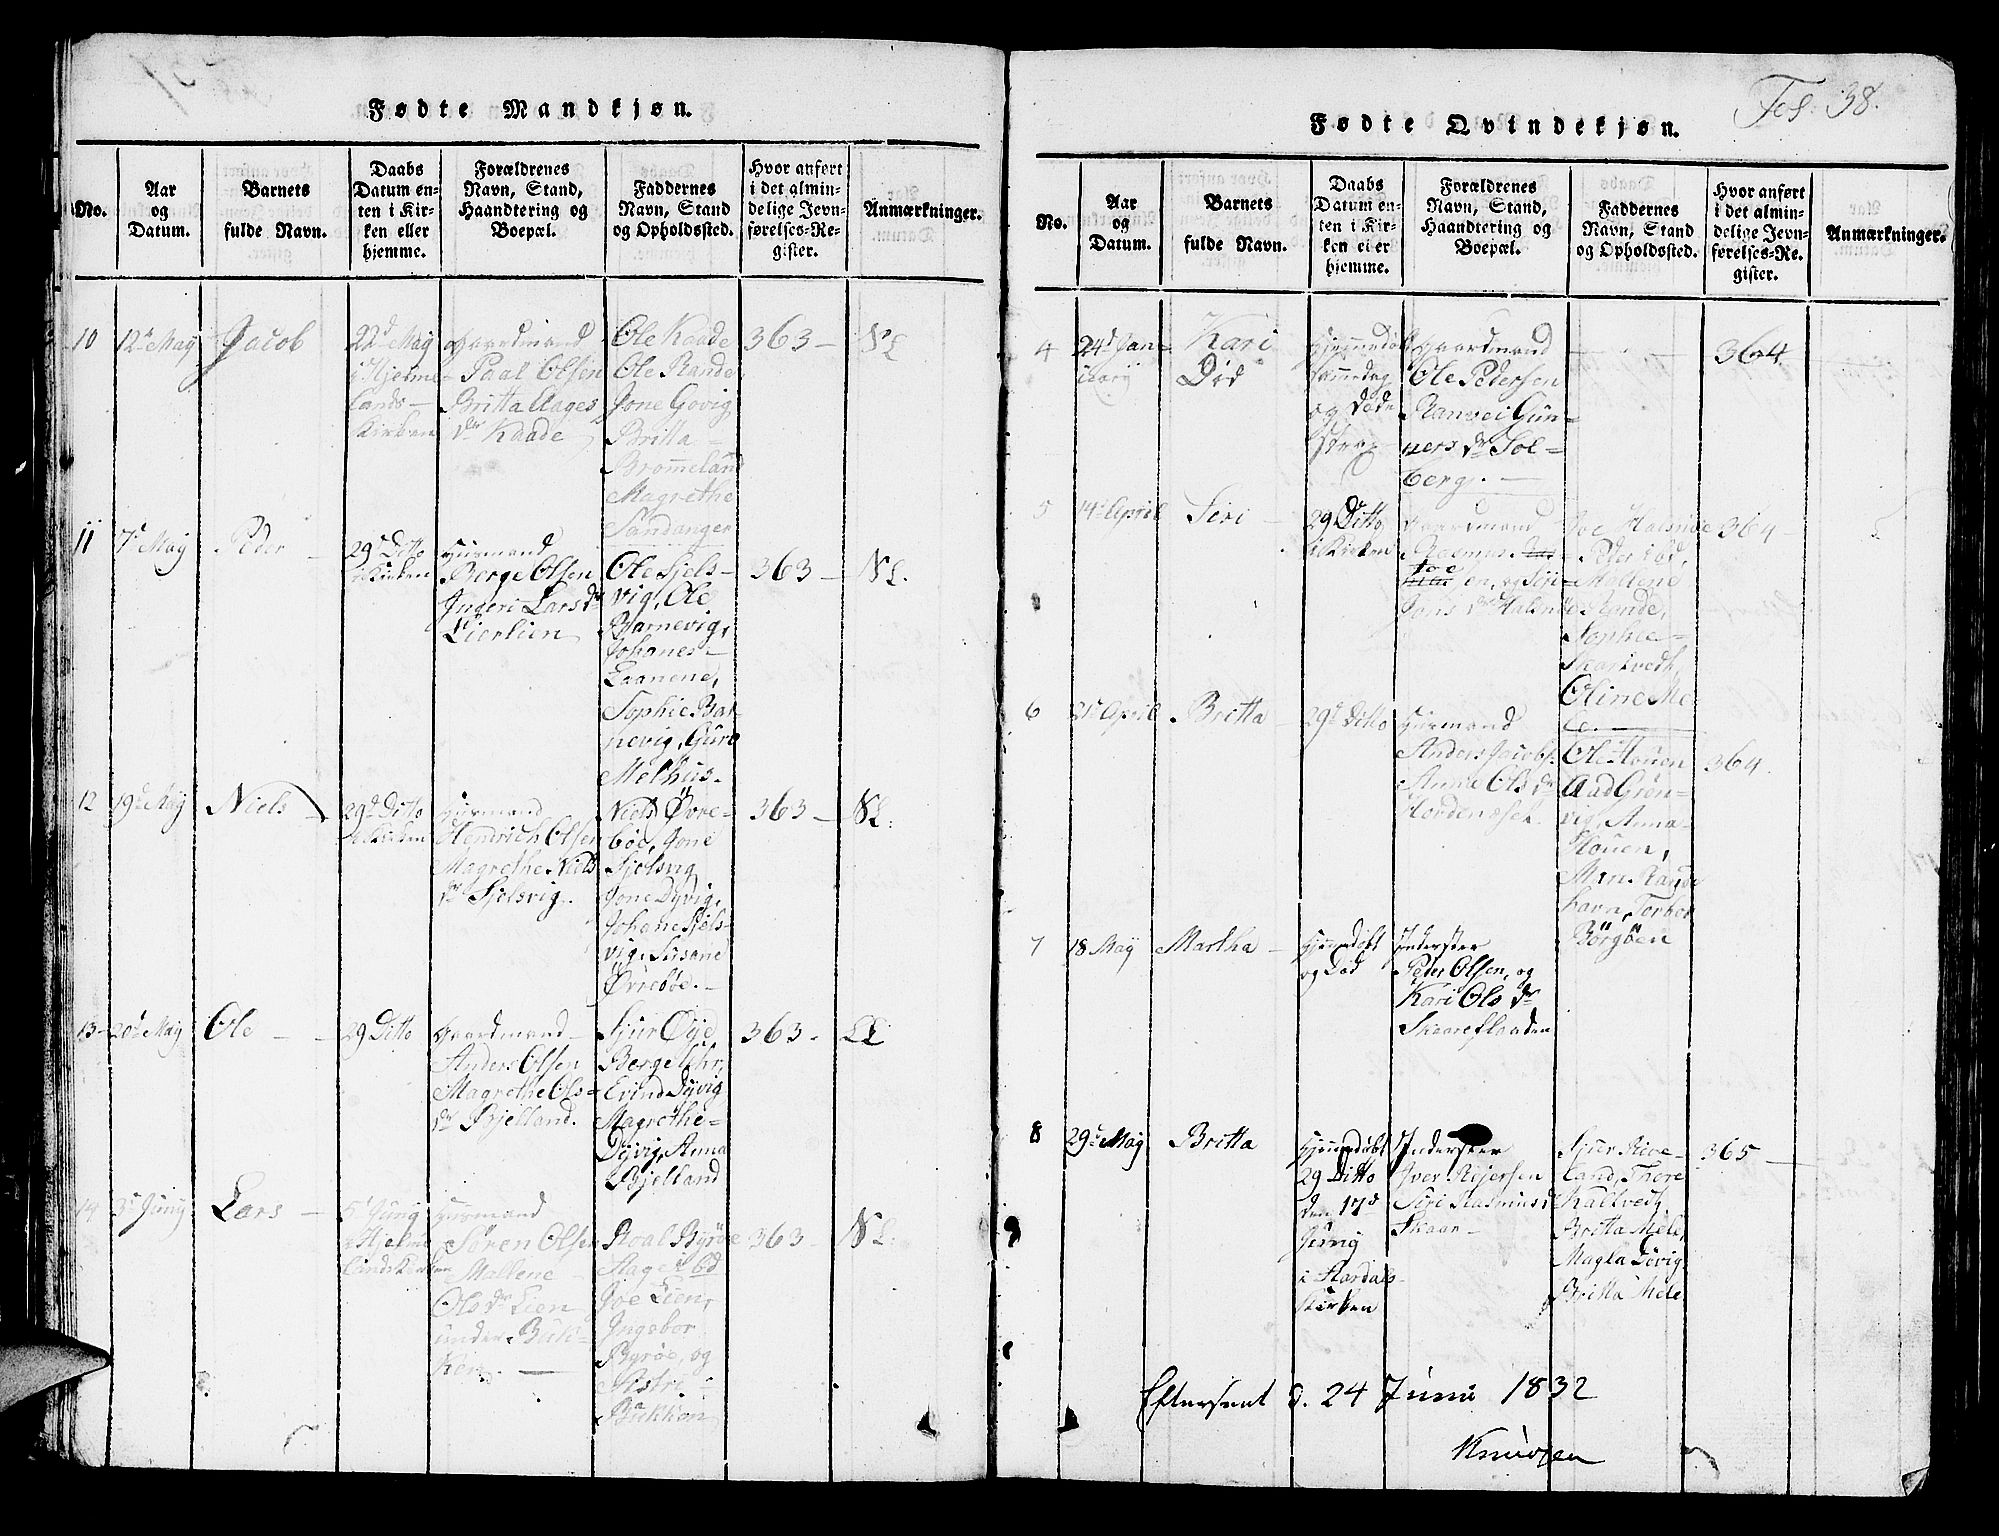 Fødte Mandkjøn.
No.
Aar
og
Datum.
Barnets
fulde Navn.
Daabs
Datum en-
ten i Kir-
ken eller
hjemme.
Forældrenes
Navn, Stand,
Haandtering og
Boepæl.
Faddernes
Navn, Stand
og Opholdssted.
Hvor anført
i det almin-
delige Jevn-
førelses-Re-
gister.
Anmærkninger.
10
12 May
Jacob
22d May
i Hjelme-
lands-
Kirken
Gaardmand
Paal Olsen
Britta Aages
dr Kaade
Ole Kaade
Ole Rande
Jone Govig
Britta
Brommeland
Magrethe
Sandanger
363
11
7 May
Peder
29 Ditto
i Kirken
Huusmand
Berge Olsen
Ingeri Lars dr
Lierlien
Ole Sjels-
vig, Ole
Barnevig,
Johanes
Laanene,
Sophie Bar-
nevig, Guro
Melhus.
363
12
19d May
Niels
29d Ditto
i Kirken
Huusmand
Hendrich Olsen
Magrethe Niels
dr Sjelsvig.
Niels Øvre-
bøe, Jone
Sjelsvig
Jone Dyvig,
Johane Sjels-
vig, Susane
Øvrebøe.
363
13
20d May
Ole
29 Ditto
Gaardmand
Anders Olsen
Magrethe Ols-
dr Bjelland.
Sjur Øye
Berge Uhr,
Evind Dyvig
Magrethe
Dyvig, Anna
Bjelland
363
14
3d Juny
Lars
5 Juny
i Hjelme
landsKirken
Huusmand
Søren Olsen
Mallene
Ols dr Lien
under Buk-
Ken.
Roal Byrøe
Aage ibd
Joe Lien,
Ingebor
Byrøe, og
Sistri
Bukken
363
Fol: 38.
Fødte Qvindekjøn.
No.
Aar
og
Datum.
Barnets
fulde Navn.
Daabs
Datum en-
ten i Kir-
ken eller
hjemme.
Forældrenes
Navn, Stand,
Haandtering og
Boepæl.
Faddernes
Navn, Stand
og Opholdssted.
Hvor anført
i det almin-
delige Jevn-
førelses-Re-
gister.
Anmærkninger.
4
24d Jan-
uarij
Kari
Död
Hjemmedøbt
samme dag
og døde
strax
Gaardmand
Ole Pedersen
Ranvei Gun-
ners dr Sol-
berg.
364
5
14 April
Seri
29 Ditto
i Kirken
Gaardmand
Rasmus
Joe Halsnøe
Peder ibd,
Mallene
Rande,
Sophie
Skartvedt,
Oline Me-
le
364
6
21 April
Britta
29d Ditto
Huusmand
Anders Jacobs.
Anne Ols dr
Hordenæset.
Ole Houen
Aad Grøn-
vig, Anna
Houen,
Torbor
Börgöen
364
7
18 May
Martha
Hjemmdøbt
og Död
Inderster
Peder Olsen, og
Kari Ols dr
Skaareflaaden
8
29d May
Britta
Hjemmdøbt
29 Ditto
den 17d
Juny
i Aardals-
Kirken
Inderster
Iver Rejersen
Seri Rasmusd
Skaar
Sjur Rive-
land, Thore
Kaltvedt
Britta Mele,
Magla Døvig
Britta Mele
365
Efterseet d. 24 Juni 1832
Knudzen